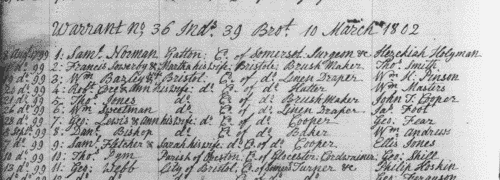 Warrant No. 36 Ind. 39 Brot. 10 March 1802
99 1: Saml. Norman Yatton Co. of Somerset Surgeon & Hezekiah Holyman
do. 99 2: Francis & Martha his wife Bristol Brush Maker Thos. Smith
do. 99 3: Wm. Bristol Linen Draper Wm. K. Pinson
do. 99 4: Robt. & Ann his wife do. Co. of do. Hatter Wm. Masters
do. 99 5: Thos. Jones do. C. of do. Brush Maker John T. Cooper
do. 99 6: Wm. do. C. of do. Linen Draper Jas. Foot
do. 99 7: Geo. Lewis & Ann his wife do. C. of do. Cooper Geo. Fear
Sept. 99 8: Danl. Bishop do. C. of do. Baker Wm. Andrews
7 do. 99 9: Saml. Fletcher & Sarah his wife do. C. of do. Cooper Ellis Jones
10 do. 99 10: Thos. Pym Parish of Co. of Glocester Cordwainer Geo. Shill
13 do. 99 11: Geo. Webb City of Bristol, Co. of Turner &c Philip Hoskin
Geo. Ferguson